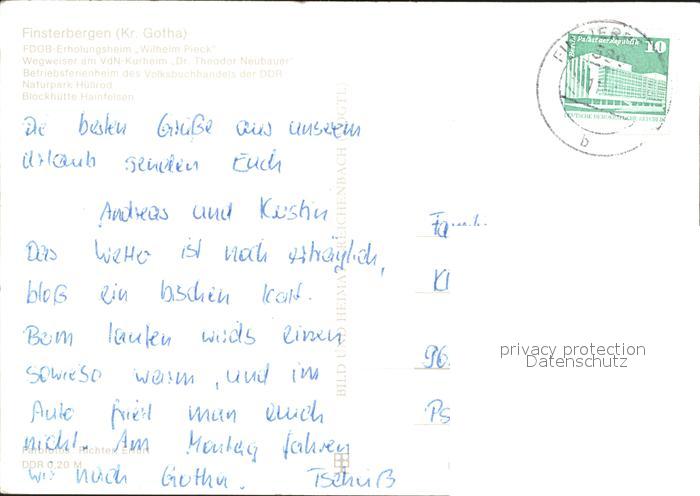 Finsterbergen (Kr. Gotha)
FDGB-Erholungsheim „Wilhelm Pieck"
Wegweiser am VdN-Kurheim „Dr. Theodor Neubauer"
Betriebsferienheim des Volksbuchhandels der DDR
Naturpark Hüllrod
Blockhütte Hainfelsen
Palast der Republik 10
DEUTSCHE DEMOKRATISCHE REPUBLIK
b
Die besten Grüße aus unserem
Urlaub senden Euch
Andreas und Kerstin
Das Wetter ist noch erträglich,
bloß ein bischen kalt.
Beim laufen wirds einen
sowieso warm, und im
Auto friert man auch
nicht. Am Montag fahren
wir nach Gotha. Tschüß
Fam.
Kl
96
Ps
BILD UND HEIMAT REICHENBACH (VOGTL)
privacy protection
Datenschutz
Farbfotos: Richter, Erfurt
DDR 0,20 M